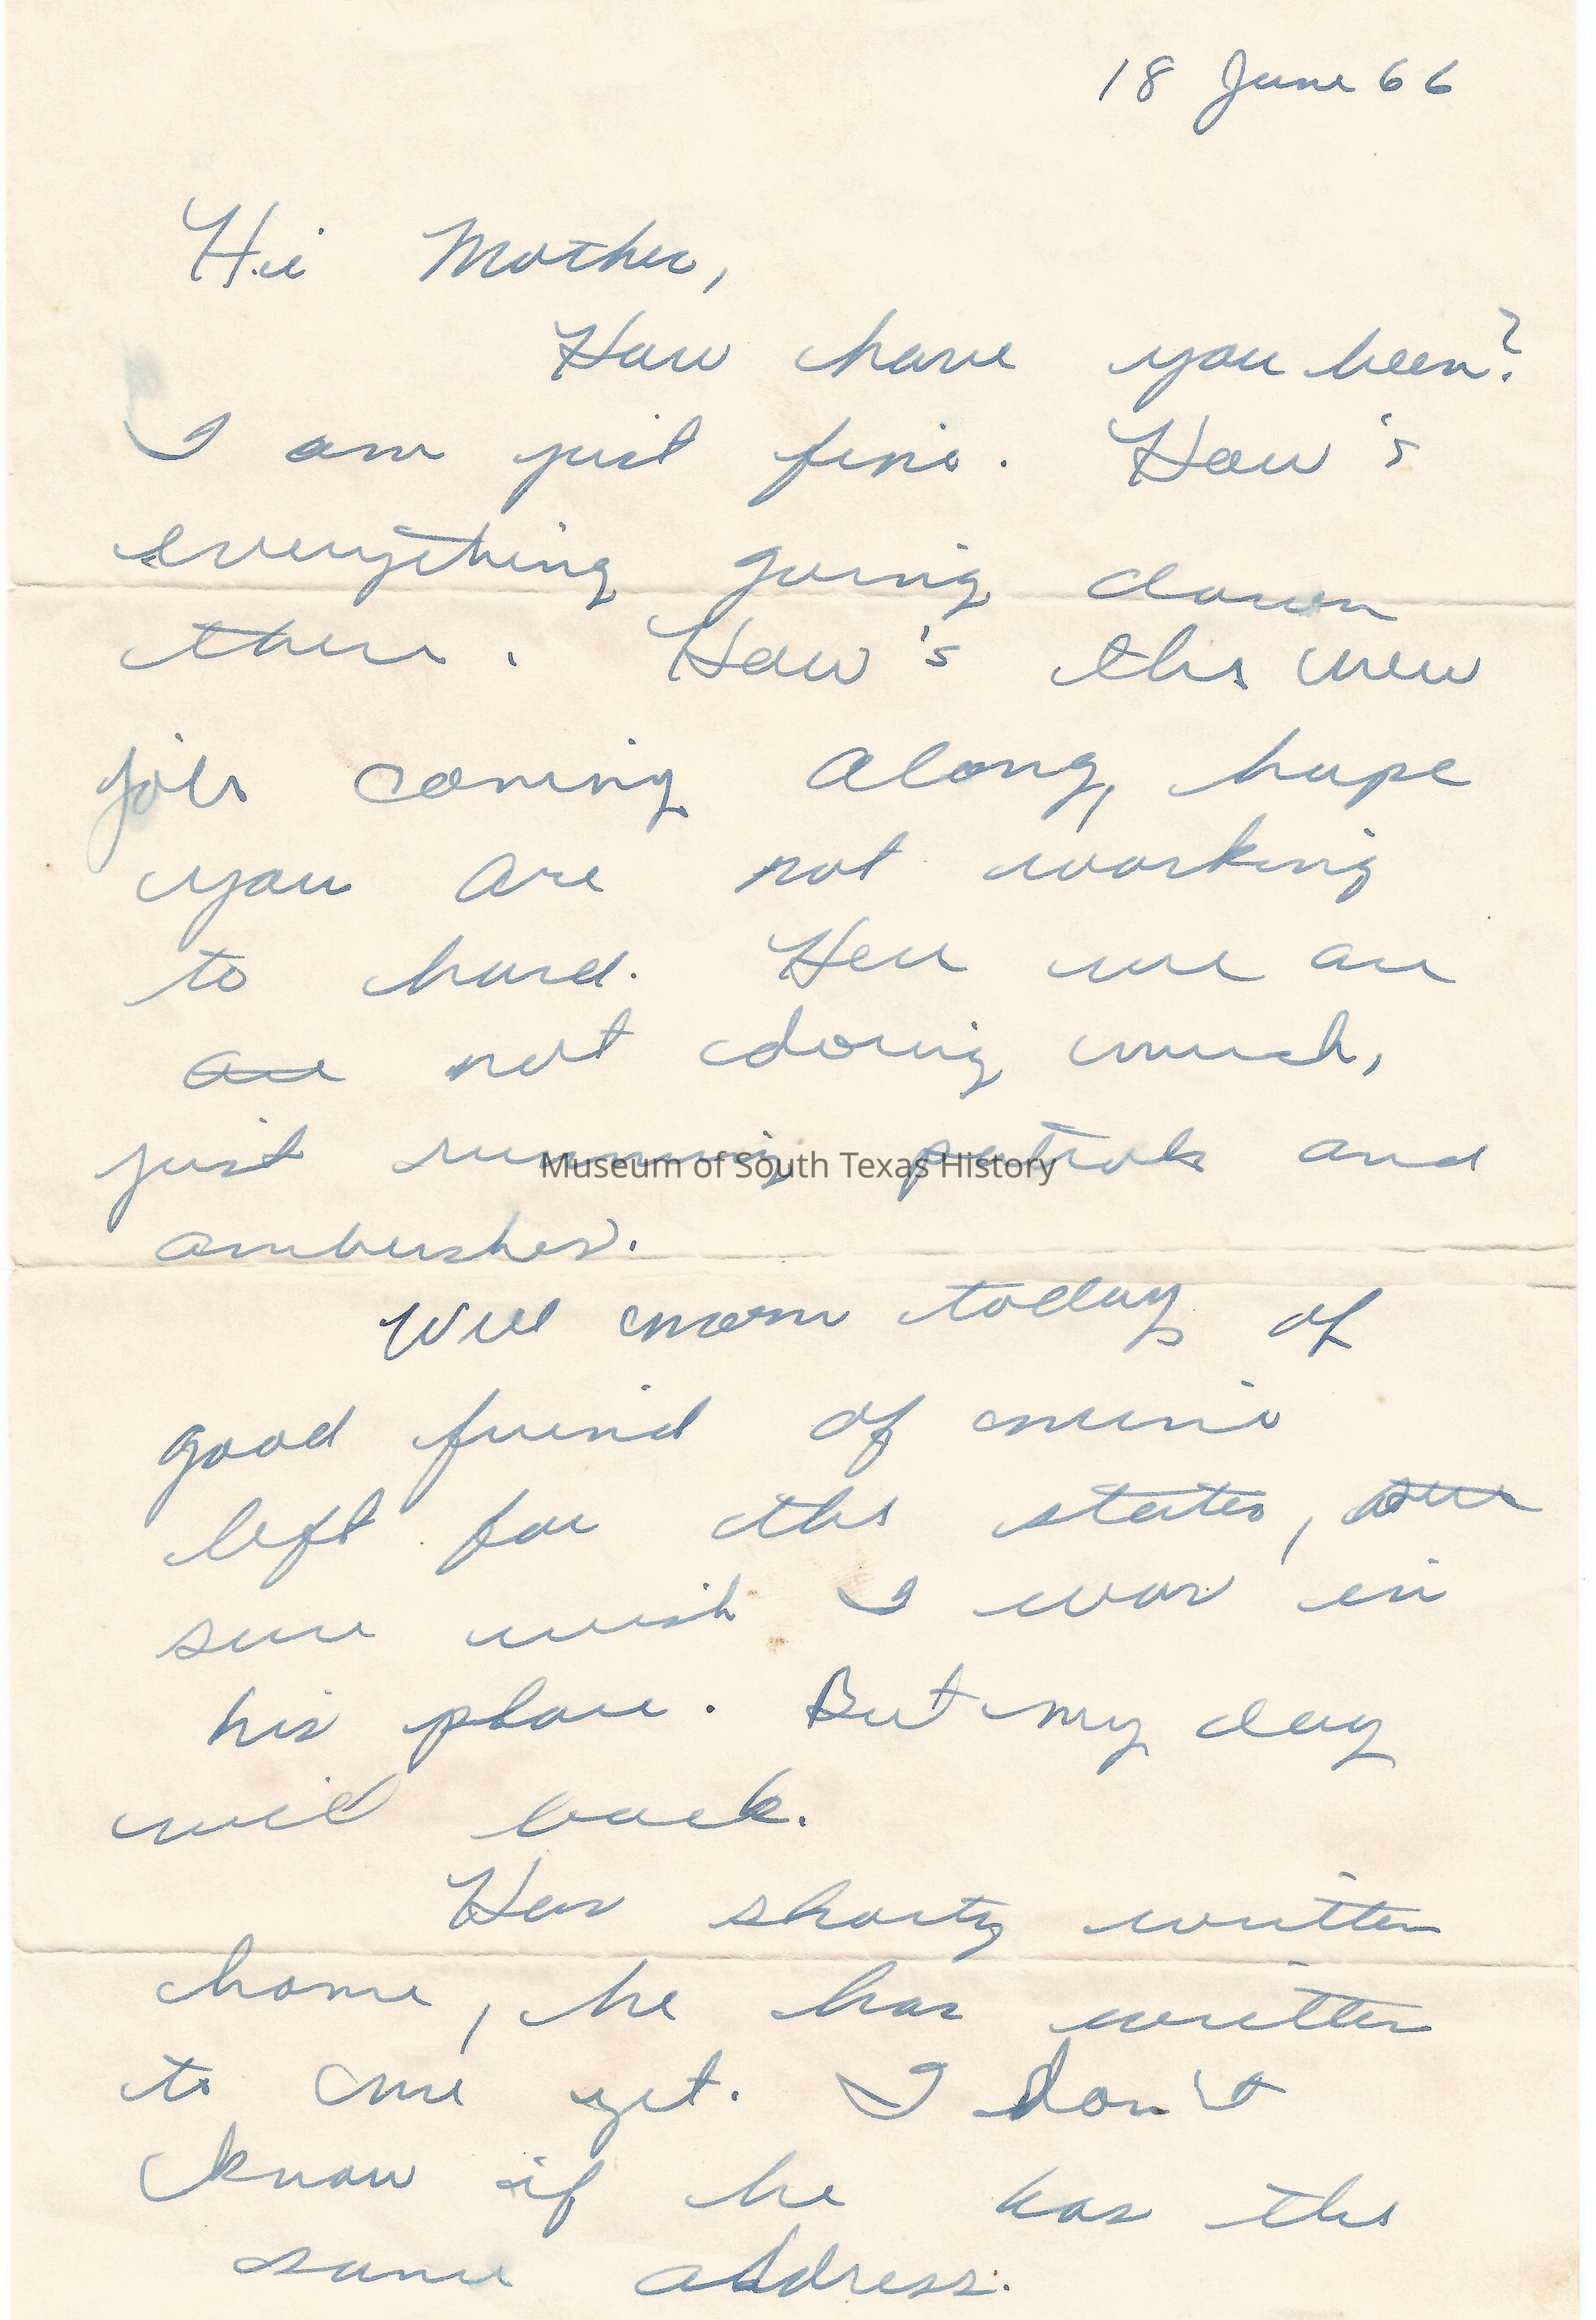 18 June 66
Hi Mother,
How have you been?
I am just fine. How's
everything going down
there. How's the new
job coming along, hope
you are not working
to hard. Here we are
are not doing much,
just running patrols and
ambushes.
Museum of South Texas History
Well mom today of
good friend of mine
left for the states,
sure wish I was in
his place. But my day
will back.
Has shorty written
home, he has written
to me yet. I don't
know if he has the
same address.